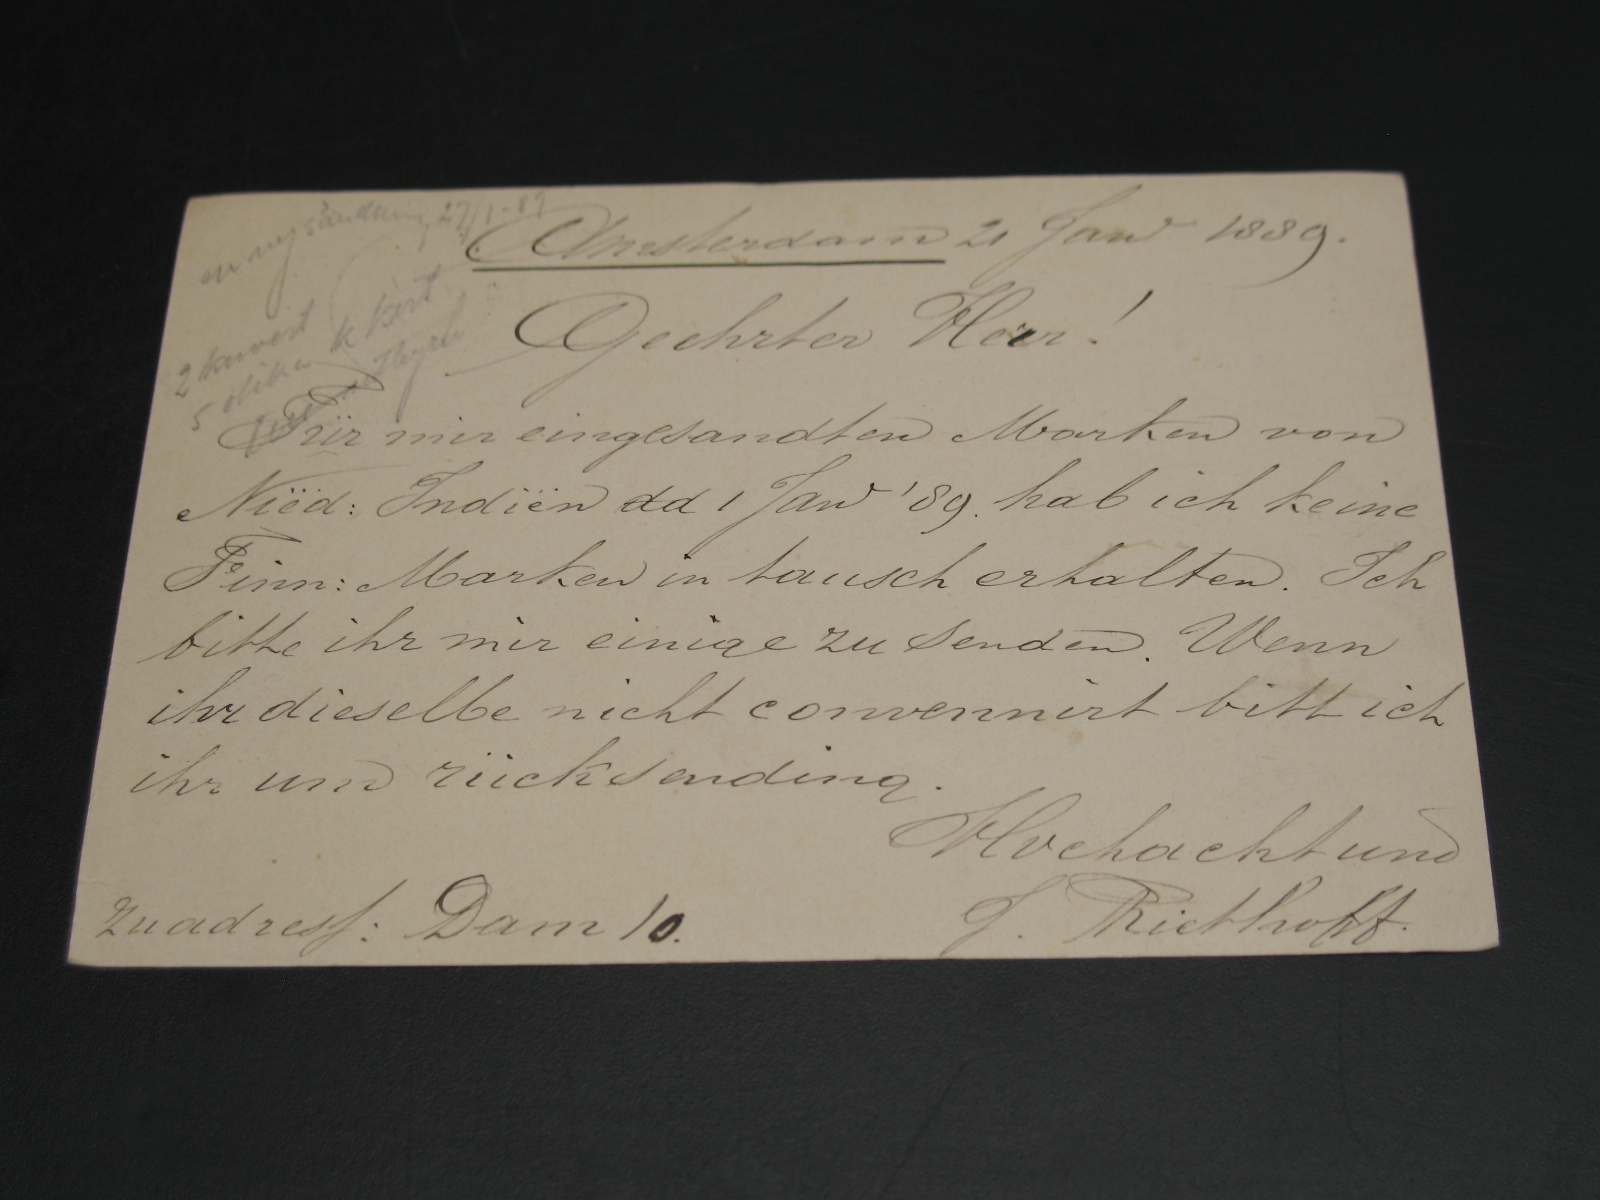 27/1-89
2 kuvert
5 olika k kort
Amsterdam 21 Janu 1889.
Geehrter Herr!
Für mir eingesandten Marken von
Niëd: Indiën dd 1 Janu '89. hab ich keine
Finn: Marken in tausch erhalten. Ich
bitte ihr mir einige zu senden. Wenn
ihr dieselbe nicht convennirt bitt ich
ihr um rücksending.
Hochachtund
J. Riethoff.
zuadress: Dam 10.